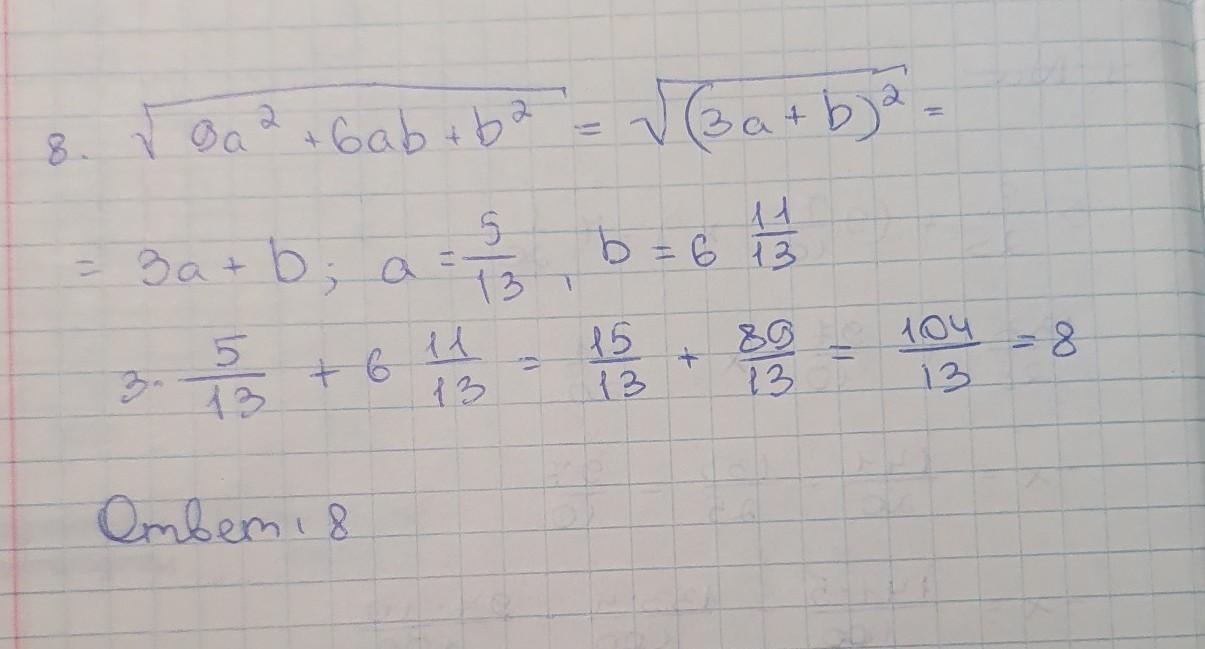 8. √(9a² + 6ab + b²) = √((3a + b)²) =
= 3a + b; a = 5/13, b = 6 11/13
3 · 5/13 + 6 11/13 = 15/13 + 89/13 = 104/13 = 8
Ответ: 8